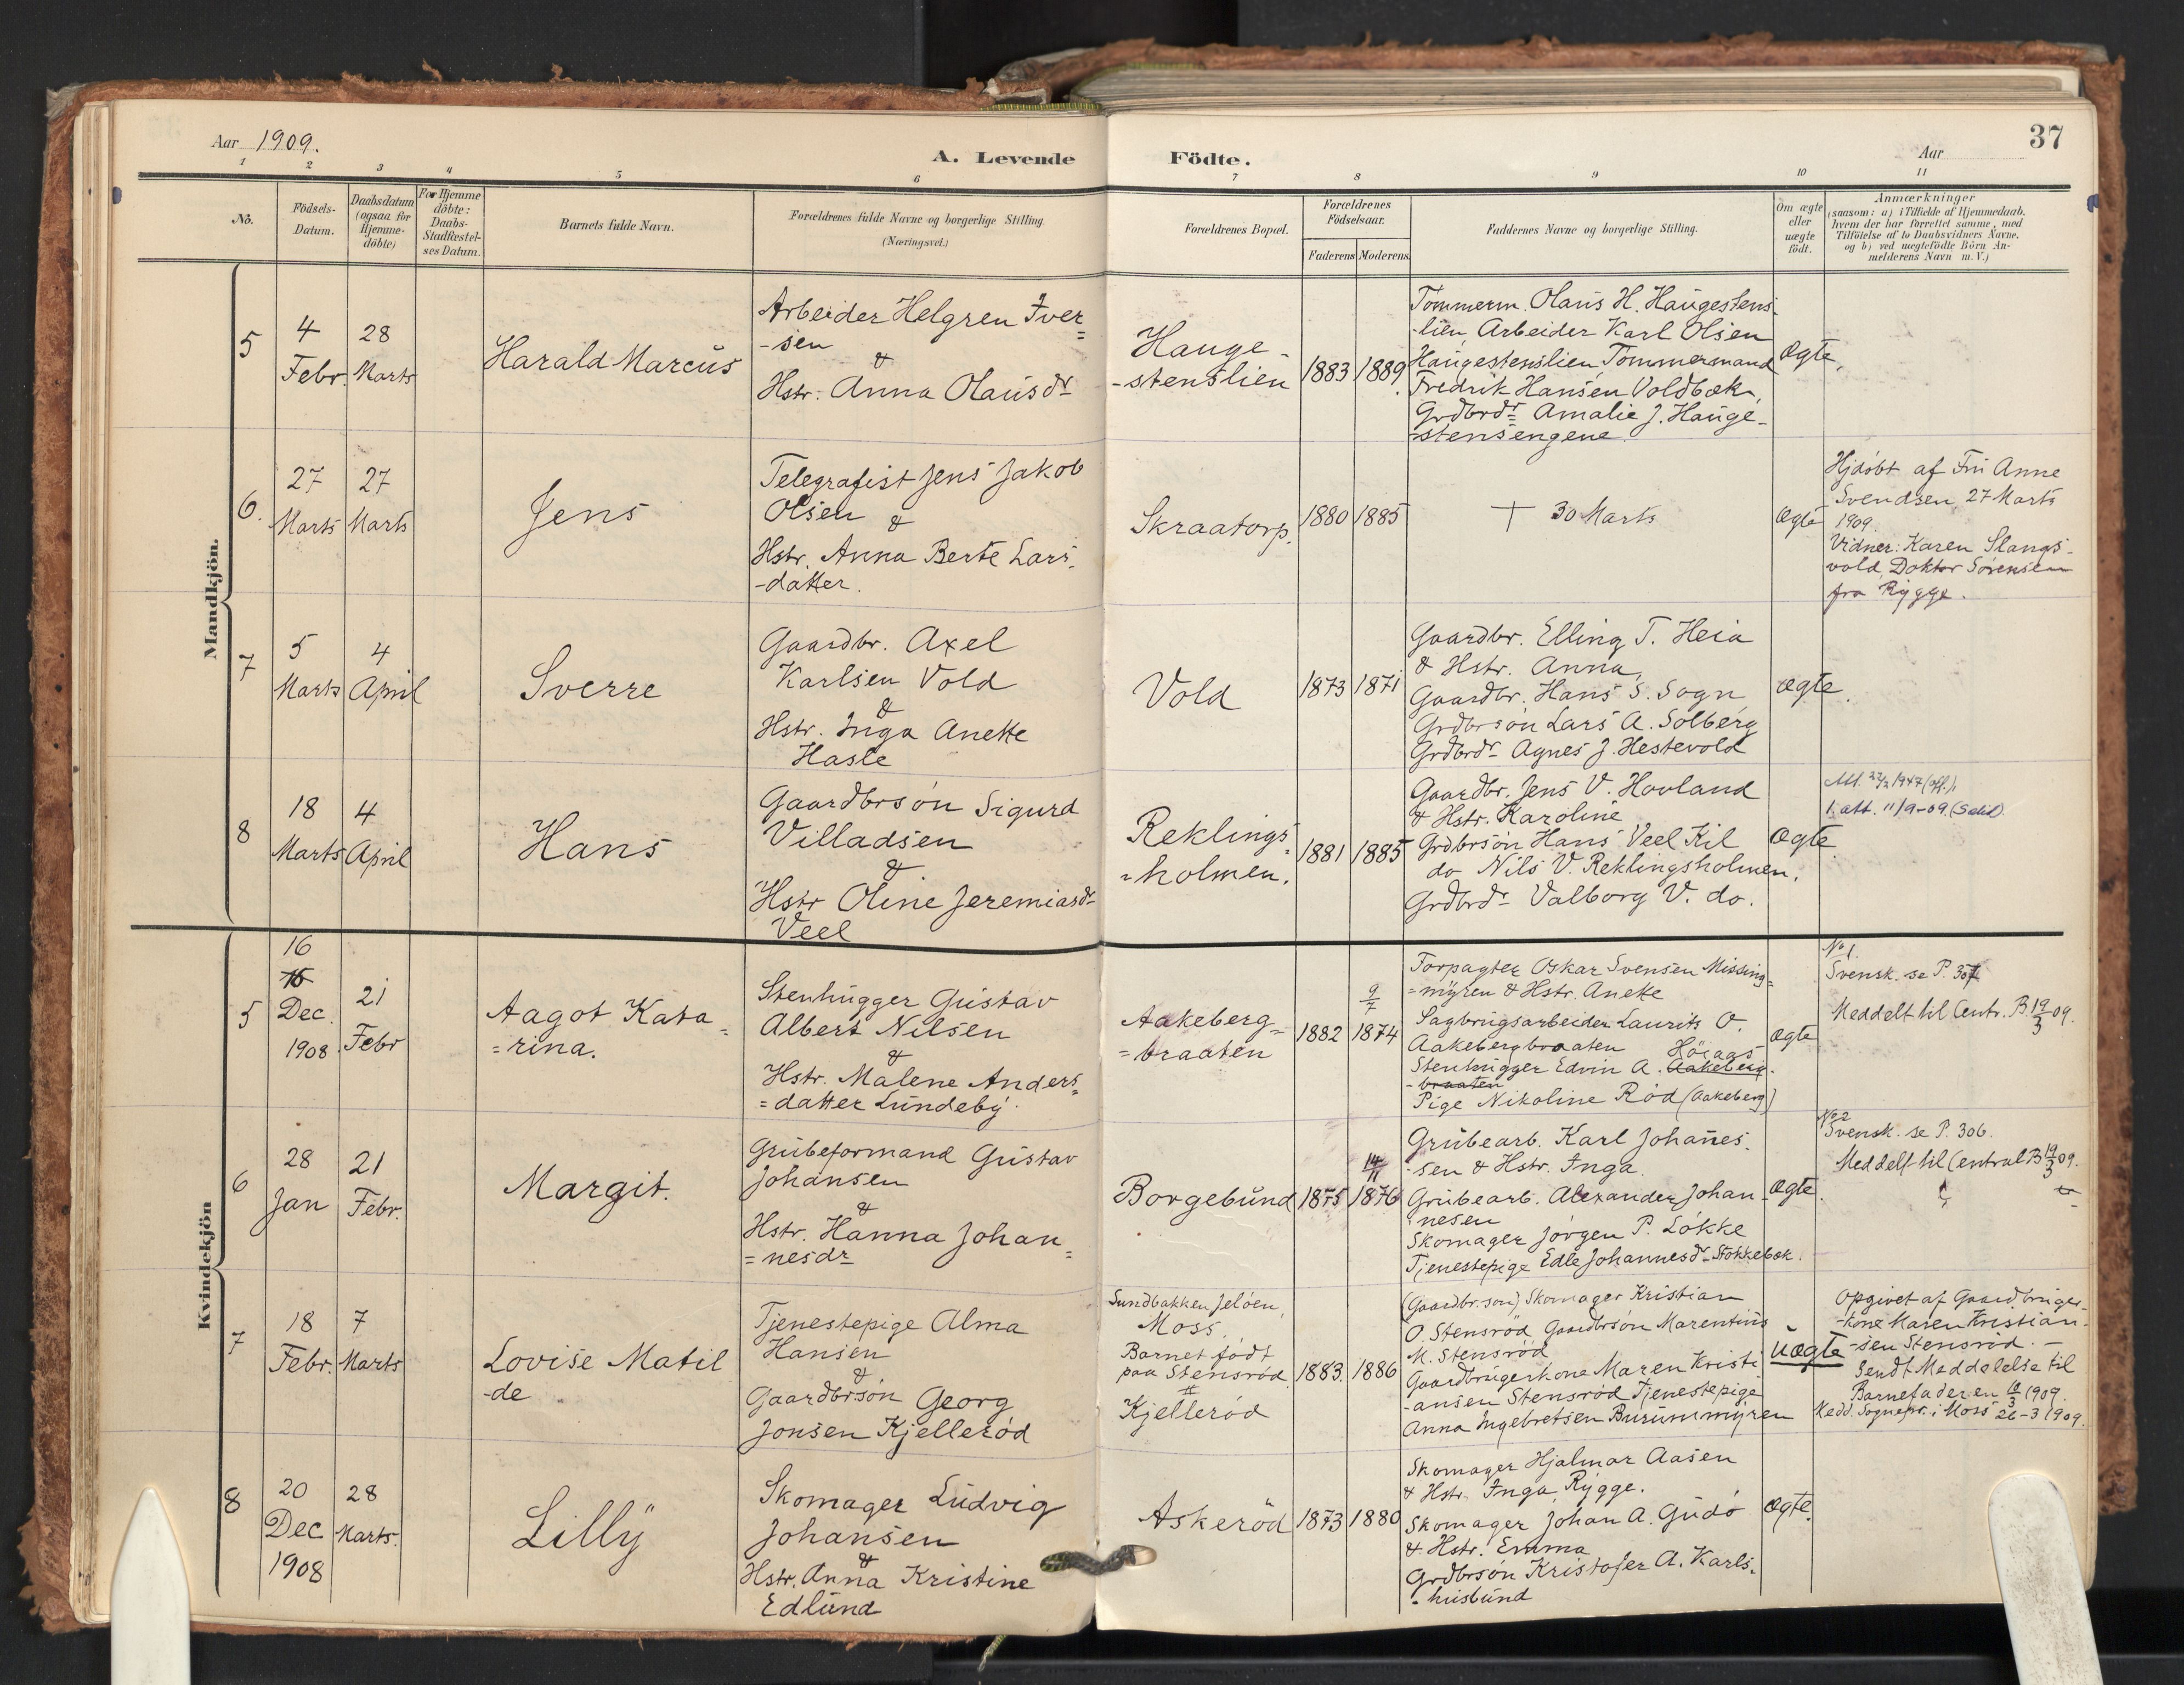 Aar 1909.
A. Levende Födte.
Aar
37
1 2 3 4 5 6 7 8 9 10 11
No.
Födsels-
Datum.
Daabsdatum
(ogsaa for
Hjemme-
döbte)
For Hjemme
döbte:
Daabs-
Stadfæstel-
ses Datum.
Barnets fulde Navn.
Forældrenes fulde Navne og borgerlige Stilling.
(Næringsvei.)
Forældrenes Bopæl.
Forældrenes
Födselsaar.
Faderens Moderens
Faddernes Navne og borgerlige Stilling.
Om ægte
eller
uægte
födt.
Anmærkninger
(saasom: a) i Tilfælde af Hjemmedaab,
hvem der har forrettet samme, med
Tilföielse af to Daabsvidners Navne,
og b) ved uægtefödte Börn An-
melderens Navn m.V.)
Mandkjön.
5
4
Febr.
28
Marts
Harald Marcus
Arbeider Helgren Iver=
-sen
&
Hstr. Anna Olausdr
Hauge-
-stenslien
1883
1889
Tömmerm. Olaus H. Haugestens-
-lien, Arbeider Karl Olsen
Haugestenslien, Tömmermand
Fredrik Hansen Voldbæk,
Grdbrdr Amalie J. Hauge-
-stensengene.
Ægte,
6.
27
Marts
27
Marts
Jens
Telegrafist Jens Jakob
Olsen
&
Hstr. Anna Berte Lars-
-datter.
Skraatorp.
1880
1885
† 30 Marts
Ægte
Hjdöbt af Fru Anne
Svendsen, 27 Marts
1909.
Vidner: Karen Slangs-
vold, Doktor Sörensen
fra Rygge.
7
5
Marts
4
April
Sverre
Gaardbr. Axel
Karlsen Vold
&
Hstr. Inga Anette
Hasle
Vold
1873
1871
Gaardbr. Elling T. Heia
& Hstr. Anna,
Gaardbr. Hans S. Sogn
Grdbrsön Lars A. Solberg
Grdbrdr Agnes J. Hestevold
Ægte.
8
18
Marts
4
April
Hans
Gaardbrsön Sigurd
Villadsen
&
Hstr Oline Jeremiasdr
Veel
Reklings=
=holmen.
1881
1885
Gaardbr. Jens V. Hovland
& Hstr. Karoline
Grdbrsön Hans Veel Kil
do Nils V. Reklingsholmen.
Grdbrdr Valborg V. do.
Ægte
1947 (off.)
1. att. 11/9-09.
Kvindekjön
5
16
Dec.
1908.
21
Febr
Aagot Kata=
=rina.
Stenhugger Gustav
Albert Nilsen
&
Hstr. Malene Anders=
=datter Lundeby.
Aakeberg=
=braaten
1882
9/7
1874
Forpagter Oskar Svensen Missing=
=myren & Hstr. Anette
Sagbrugsarbeider Laurits O.
Aakebergbraaten Höiaas
Stenhugger Edvin A. Aakeberg-
-braaten
Pige Nikoline Röd (Aakeberg)
Ægte
No 1
Svensk. se P. 307
Meddelt til Centr. B. 19/3 09.
6
28
Jan
21
Febr.
Margit.
Grubeformand Gustav
Johansen
&
Hstr. Hanna Johan=
=nesdr
Borgebund
1875
14/11
1876
Grubearb. Karl Johannes-
-sen & Hstr. Inga.
Grubearb. Alexander Johan-
nesen
Skomager Jörgen P. Lökke
Tjenestepige Edle Johannesdr Stokkebæk.
Ægte.
No 2
Svensk. se P. 306.
Meddelt til Central B 19/3 09.
7
18
Febr.
7
Marts
Lovise Matil
-de
Tjenestepige Alma
Hansen
&
Gaardbrsön Georg
Jonsen Kjelleröd
Sundbakken, Jelöen,
Moss.
Barnet födt
paa Stensröd.
Kjelleröd
1883.
1886
(Gaardbr.sön) Skomager Kristian
O. Stensröd, Gaardbrsön Marentius
M. Stensröd
Gaardbrugerkone Maren Kristi-
-ansen Stensröd, Tjenestepige
Anna Ingebretsen Burummyren
Uægte
Opgivet af Gaardbruger-
-kone Maren Kristian-
-sen Stensröd. -
Sendt Meddelelse til
Barnefaderen 10/3 1909.
Medd. Sognepr. i Moss 26-3 1909.
8
20
Dec
1908
28
Marts.
Lilly
Skomager Ludvig
Johansen
&
Hstr. Anna Kristine
Edlund
Askeröd
1873
1880
Skomager Hjalmar Aasen
& Hstr. Inga, Rygge.
Skomager Johan A. Gudö
& Hstr. Emma
Grdbrsön Kristofer A. Karls-
-husbund
Ægte.